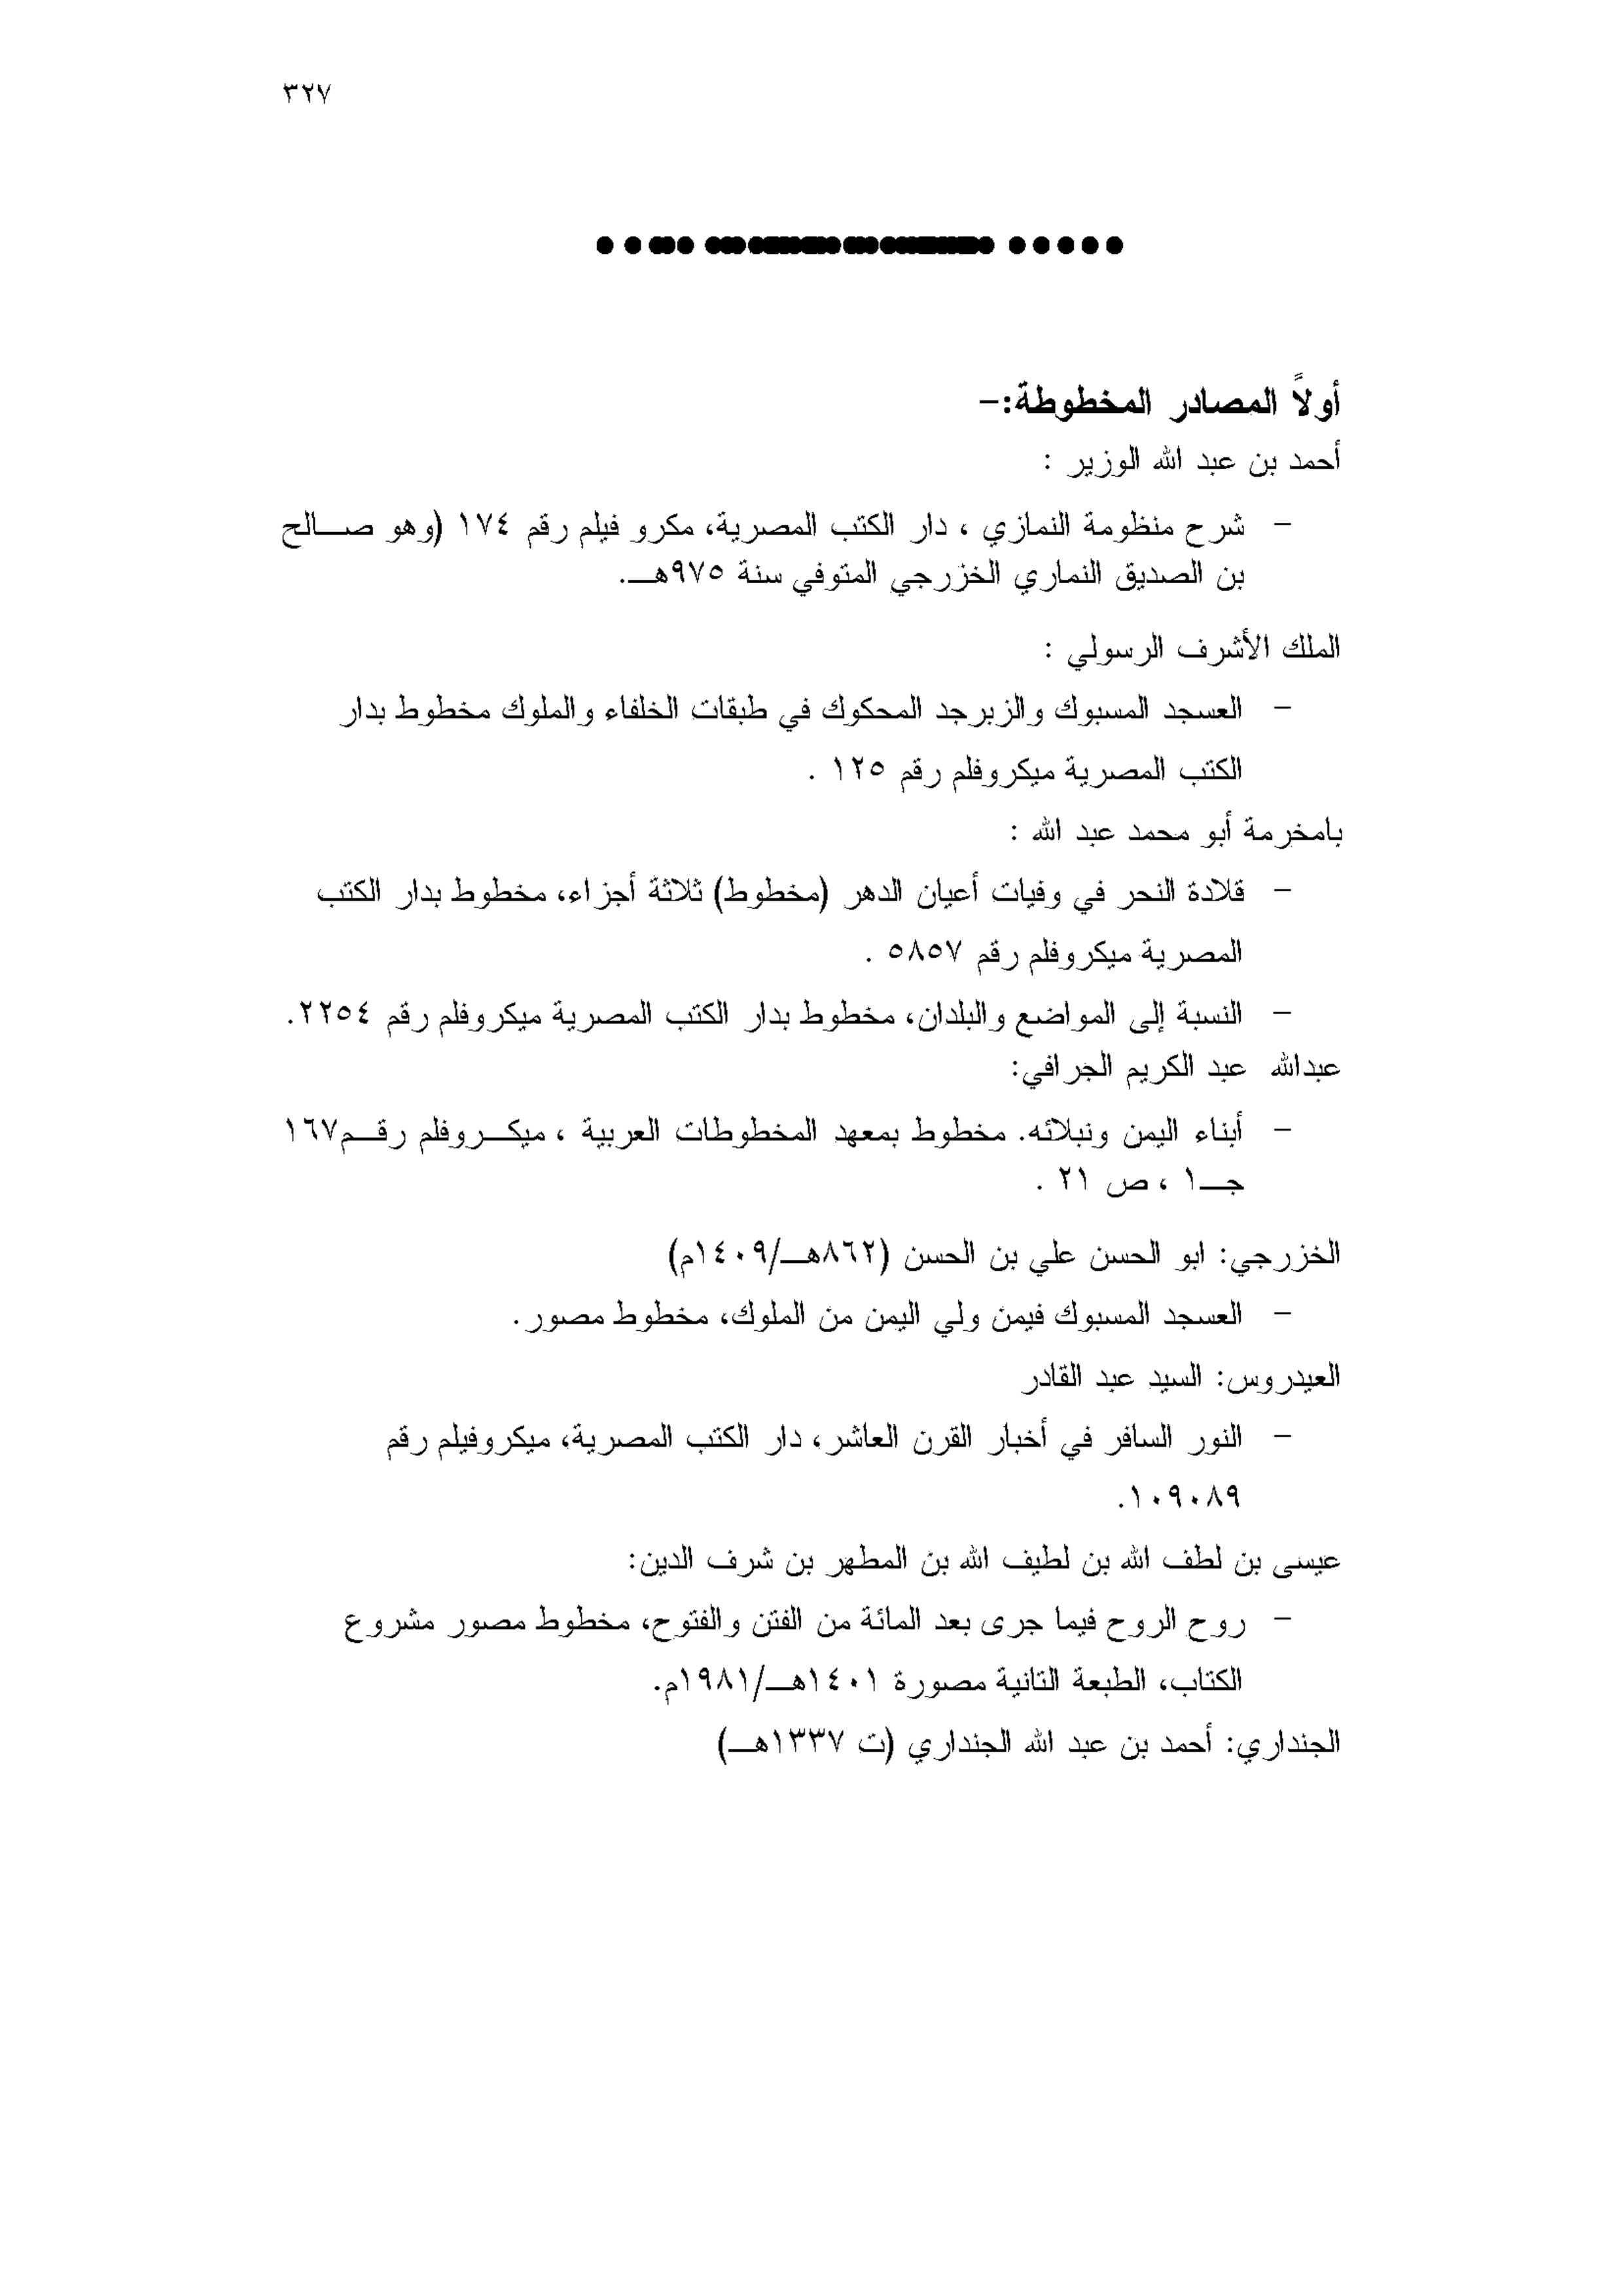 ٣٢٧
أولاً المصادر المخطوطة:-
أحمد بن عبد الله الوزير :
- شرح منظومة النمازي ، دار الكتب المصرية، مكرو فيلم رقم ١٧٤ (وهو صـــالح
بن الصديق النماري الخزرجي المتوفي سنة ٩٧٥هــ.
الملك الأشرف الرسولي :
- العسجد المسبوك والزبرجد المحكوك في طبقات الخلفاء والملوك مخطوط بدار
الكتب المصرية ميكروفلم رقم ١٢٥ .
بامخرمة أبو محمد عبد الله :
- قلادة النحر في وفيات أعيان الدهر (مخطوط) ثلاثة أجزاء، مخطوط بدار الكتب
المصرية ميكروفلم رقم ٥٨٥٧ .
- النسبة إلى المواضع والبلدان، مخطوط بدار الكتب المصرية ميكروفلم رقم ٢٢٥٤.
عبدالله عبد الكريم الجرافي:
- أبناء اليمن ونبلائه. مخطوط بمعهد المخطوطات العربية ، ميكـــروفلم رقـــم١٦٧
جــ١ ، ص ٢١ .
الخزرجي: ابو الحسن علي بن الحسن (٨٦٢هــ/١٤٠٩م)
- العسجد المسبوك فيمن ولي اليمن من الملوك، مخطوط مصور.
العيدروس: السيد عبد القادر
- النور السافر في أخبار القرن العاشر، دار الكتب المصرية، ميكروفيلم رقم
١٠٩٠٨٩.
عيسى بن لطف الله بن لطيف الله بن المطهر بن شرف الدين:
- روح الروح فيما جرى بعد المائة من الفتن والفتوح، مخطوط مصور مشروع
الكتاب، الطبعة الثانية مصورة ١٤٠١هــ/١٩٨١م.
الجنداري: أحمد بن عبد الله الجنداري (ت ١٣٣٧هــ)